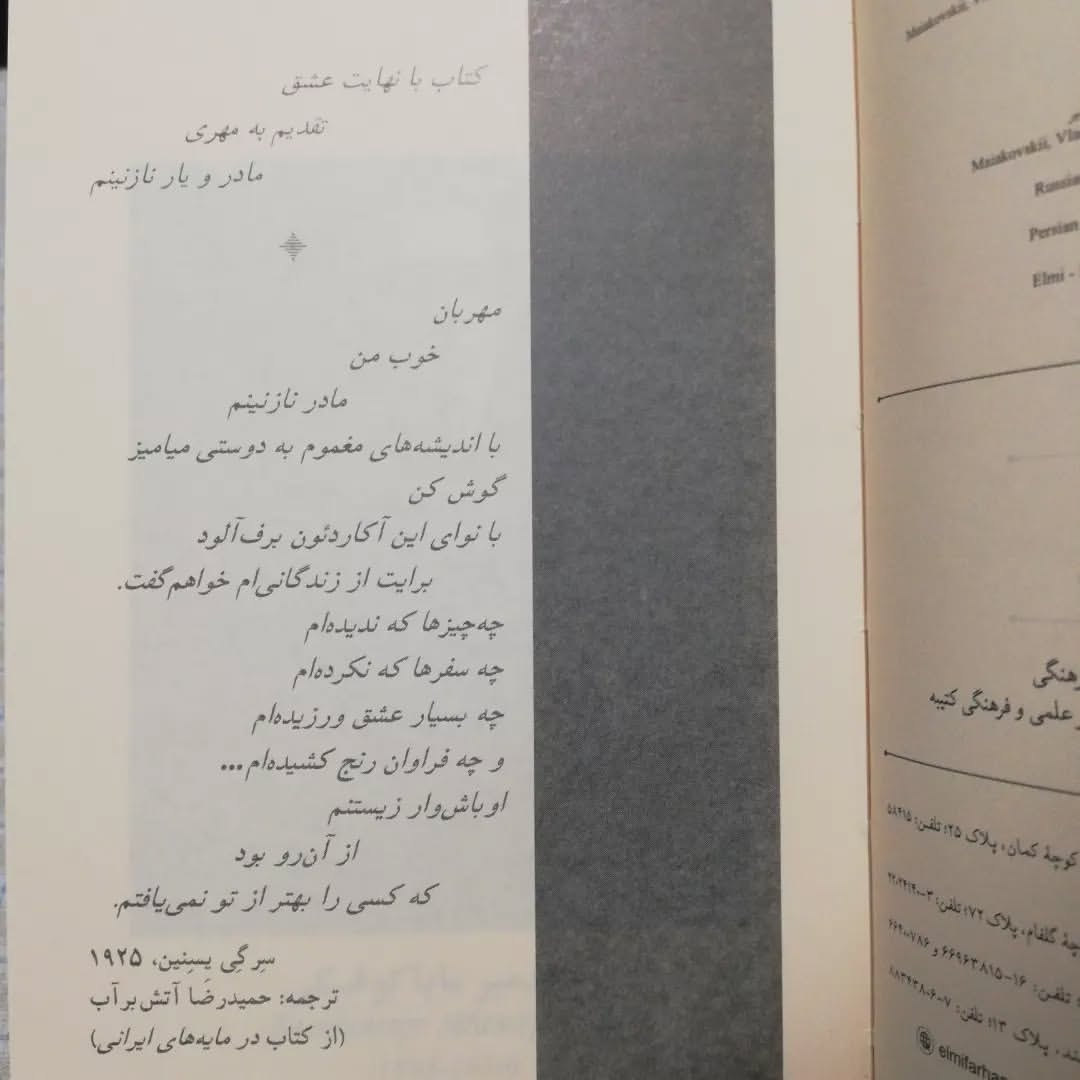 کتاب با نهایت عشق
تقدیم به مهری
مادر و یار نازنینم
مهربان
خوب من
مادر نازنینم
با اندیشه‌های مغموم به دوستی میامیز
گوش کن
با نوای این آکاردئون برف‌آلود
برایت از زندگانی‌ام خواهم‌گفت.
چه‌چیزها که ندیده‌ام
چه سفرها که نکرده‌ام
چه بسیار عشق ورزیده‌ام
و چه فراوان رنج کشیده‌ام...
اوباش‌وار زیستنم
از آن‌رو بود
که کسی را بهتر از تو نمی‌یافتم.
سِرگِی یِسِنین، ۱۹۲۵
ترجمه: حمیدرضا آتش‌برآب
(از کتاب در مایه‌های ایرانی)
Maiakovskii,
Maiakovskii, Vla
Russia
Persian
Elmi -
علمی و فرهنگی کتیبه
کوچهٔ کمان، پلاک ۲۵؛ تلفن: ۵۸۴۱۵
گلفام، پلاک ۷۲؛ تلفن: ۳-۲۲۰۲۴۱۴۰
تلفن: ۱۶-۶۶۹۶۳۸۱۵ و ۶۶۴۰۰۷۸۶
پلاک ۱۳؛ تلفن: ۷-۸۸۳۴۳۸۰۶
elmifarha